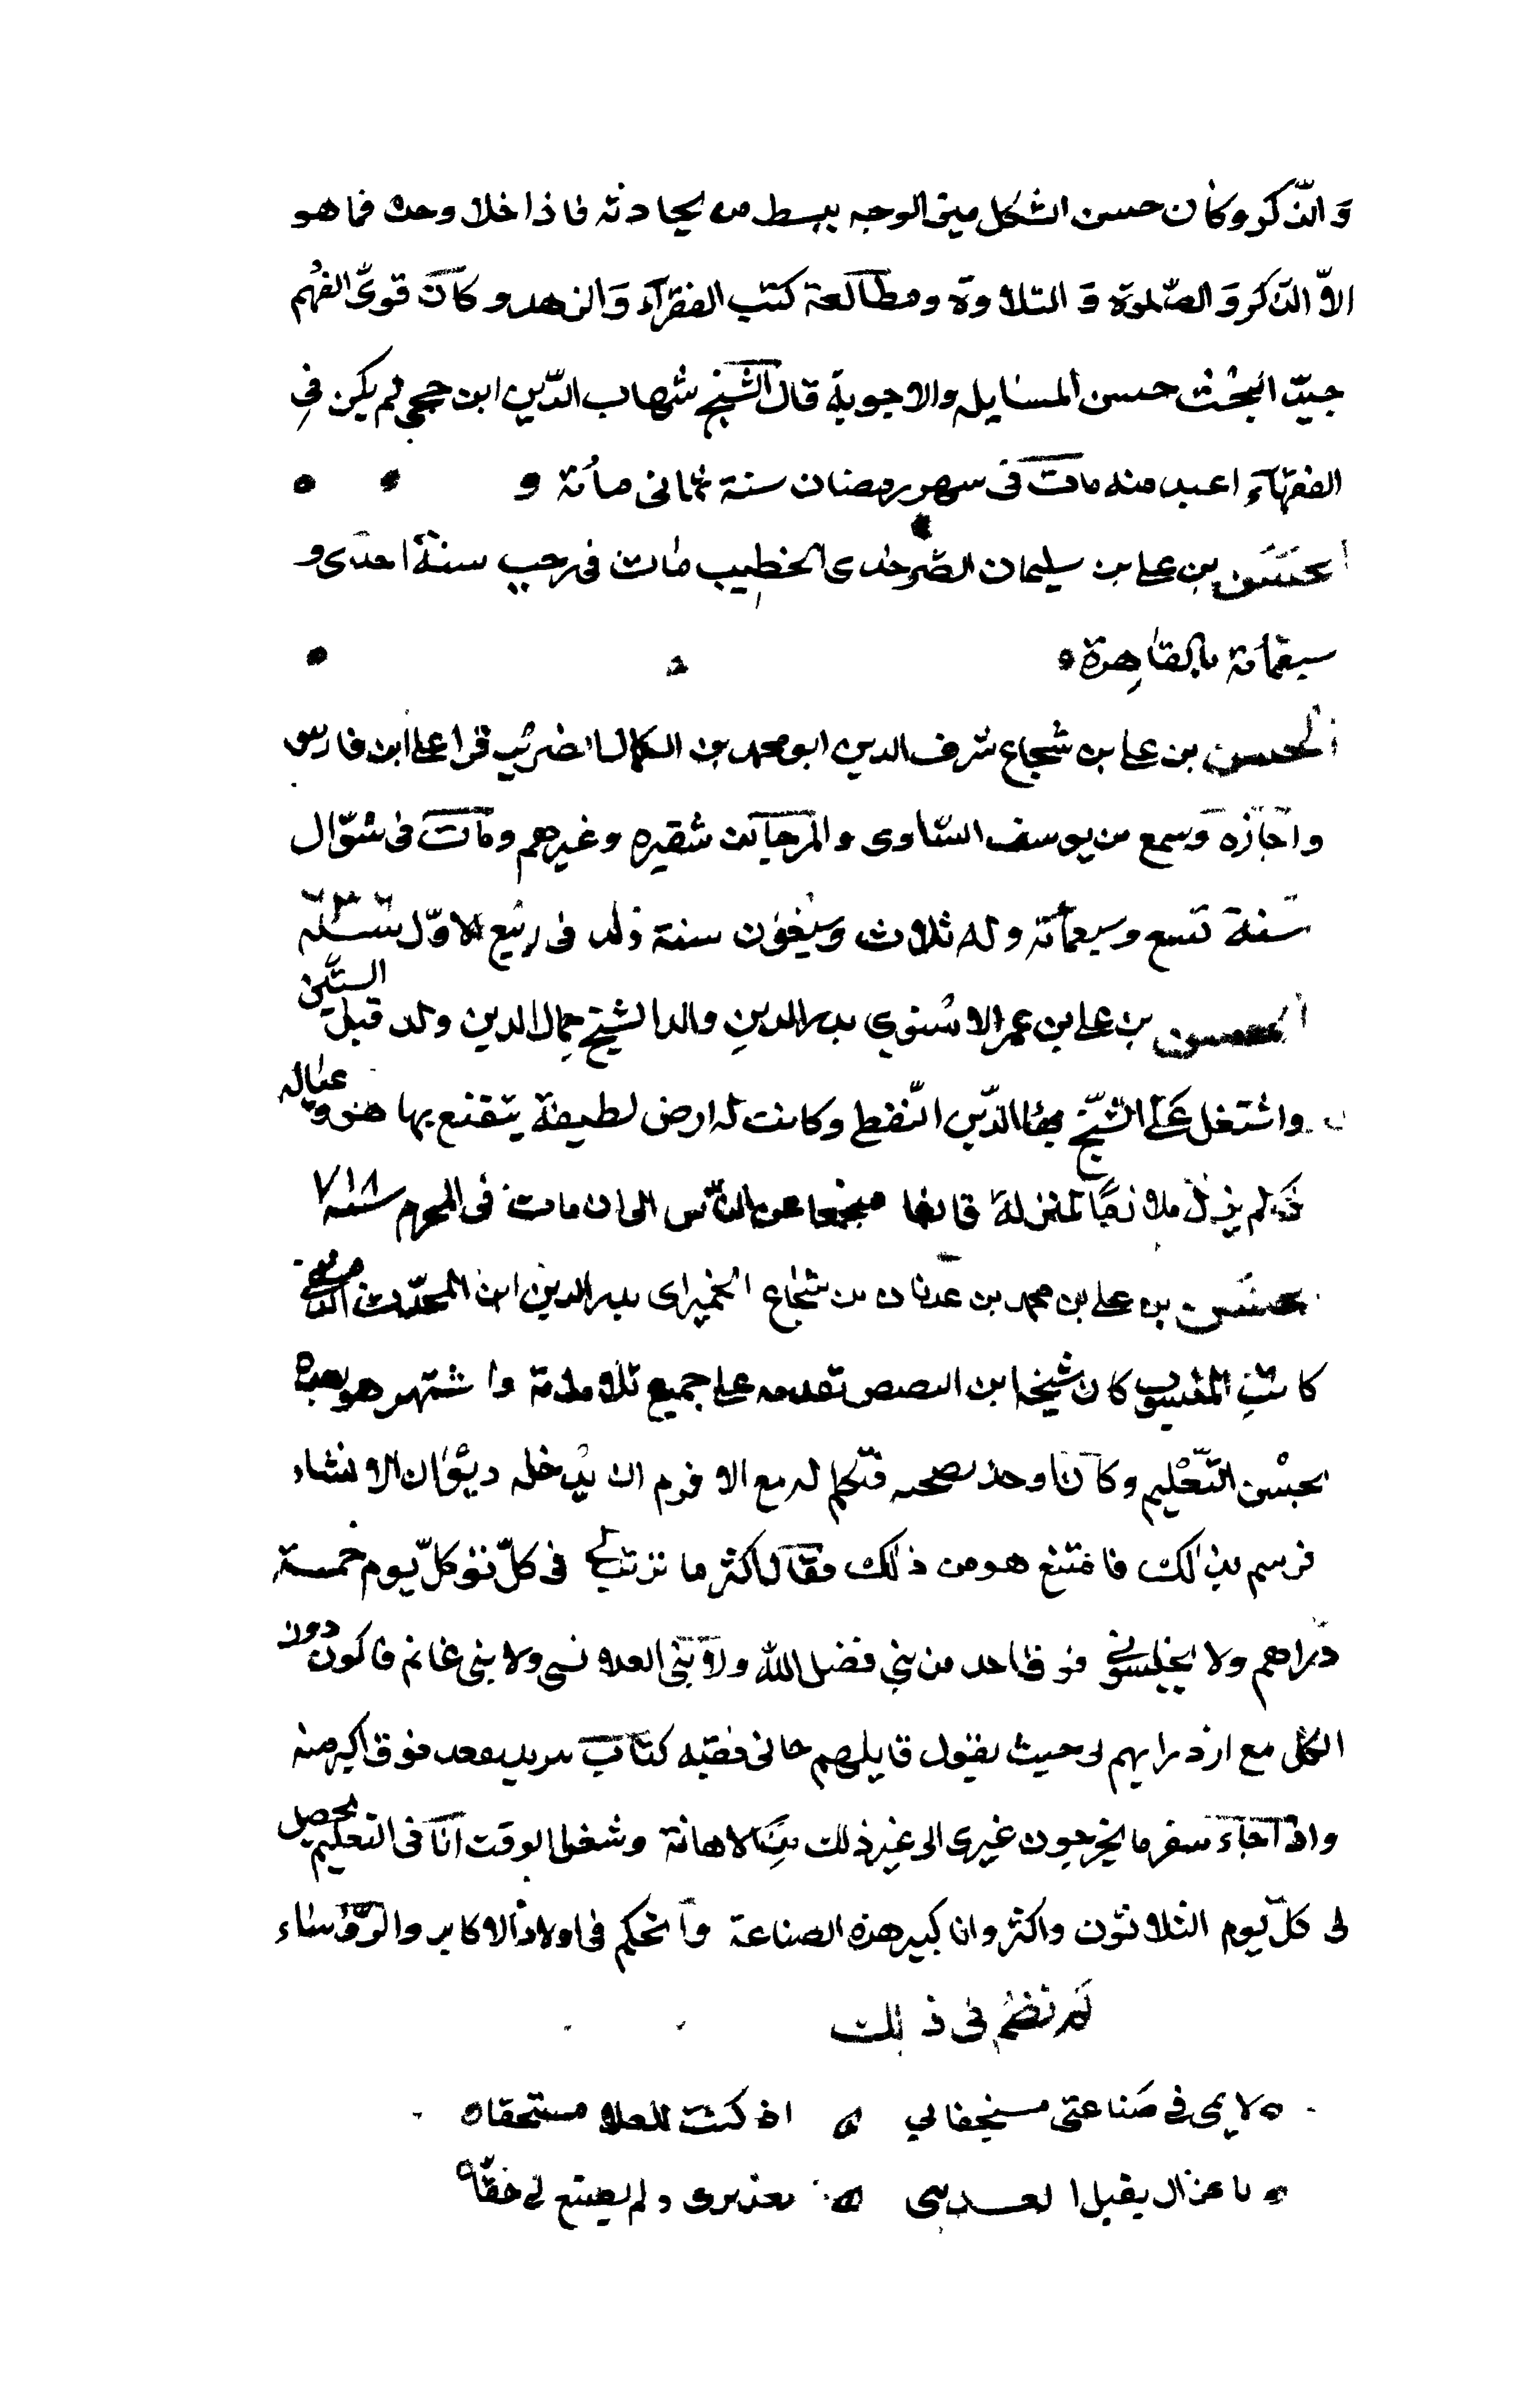 والذكر وكان حسن الشكل منير الوجه يبسط من يحادثه فاذا خلا وحده فما هو
الا الذكر والصلوة والتلاوة ومطالعة كتب الفقراء والزهد وكان قوى الفهم
جيد البحث حسن المسايله والاجوبة قال الشيخ شهاب الدين ابن حجى لم يكن فى
الفقهاء اعبد منه مات فى سهر رمضان سنة ثمانى مأئة و
الحسن بن على بن سليمان الصرخدى الخطيب مات فى رجب سنة احدى و
سبعمائة بالقاهرة
الحسن بن على بن شجاع شرف الدين ابو محمد بن الكمال الضرير قرا على ابن فارس
واجازه وسمع من يوسف الساوى والمرجا بن شقيره وغيرهم ومات فى شوال
سنة تسع وسبعمائة وله ثلاث وسبعون سنة ولد فى ربيع الاول سنة ٦٣٦
الحسن بن على بن عمر الاسنوي بدر الدين والد الشيخ جمال الدين ولد قبل الستين
واشتغل على الشيخ بهاء الدين القفطى وكانت له ارض لطيفة يتقنع بها هو وعياله
ولم يزل ملازما لمنزلة قانعا منجمعا عن الناس الى ان مات فى المحرم سنة ٧١٨
حسن بن على بن محمد بن عدنان بن شجاع الحميرى بدر الدين ابن المحدث الدمشقي
كاتب المنسوب كان شيخه ابن البصيص تقدمه على جميع تلامذته واشتهر هو بعده
بحسن التعليم وكان اوحد فتكلم له مع الافرم ان يدخله ديوان الانشاء
فرسم بذلك فامتنع هو من ذلك فقال اكثر ما يرتب لي فى كل يوم خمسة
دراهم ولا يجلسونى فوق احد من بني فضل الله ولا بنى القلانسى ولا بنى غانم فاكون دون
الكل مع ازدرايهم لى حيث يقول قايلهم فقيه كتاب يريد يقعد فوق اكبر منه
واذا جاء سفر ما يخرجون غيرى الى غير ذلك من الاهانة وشغل الوقت انا فى التعليم يحصل
لى كل يوم الثلاثون واكثر وانا كبير هذه الصناعة واتحكم فى اولاد الاكابر والرؤساء
ثم نظم فى ذلك
لايمى في صناعتى مستخفا بي اذ كنت للعلا مستحقا
ما غزال يقبل اليد منى بعذيرى ولم يضيع لى حقا